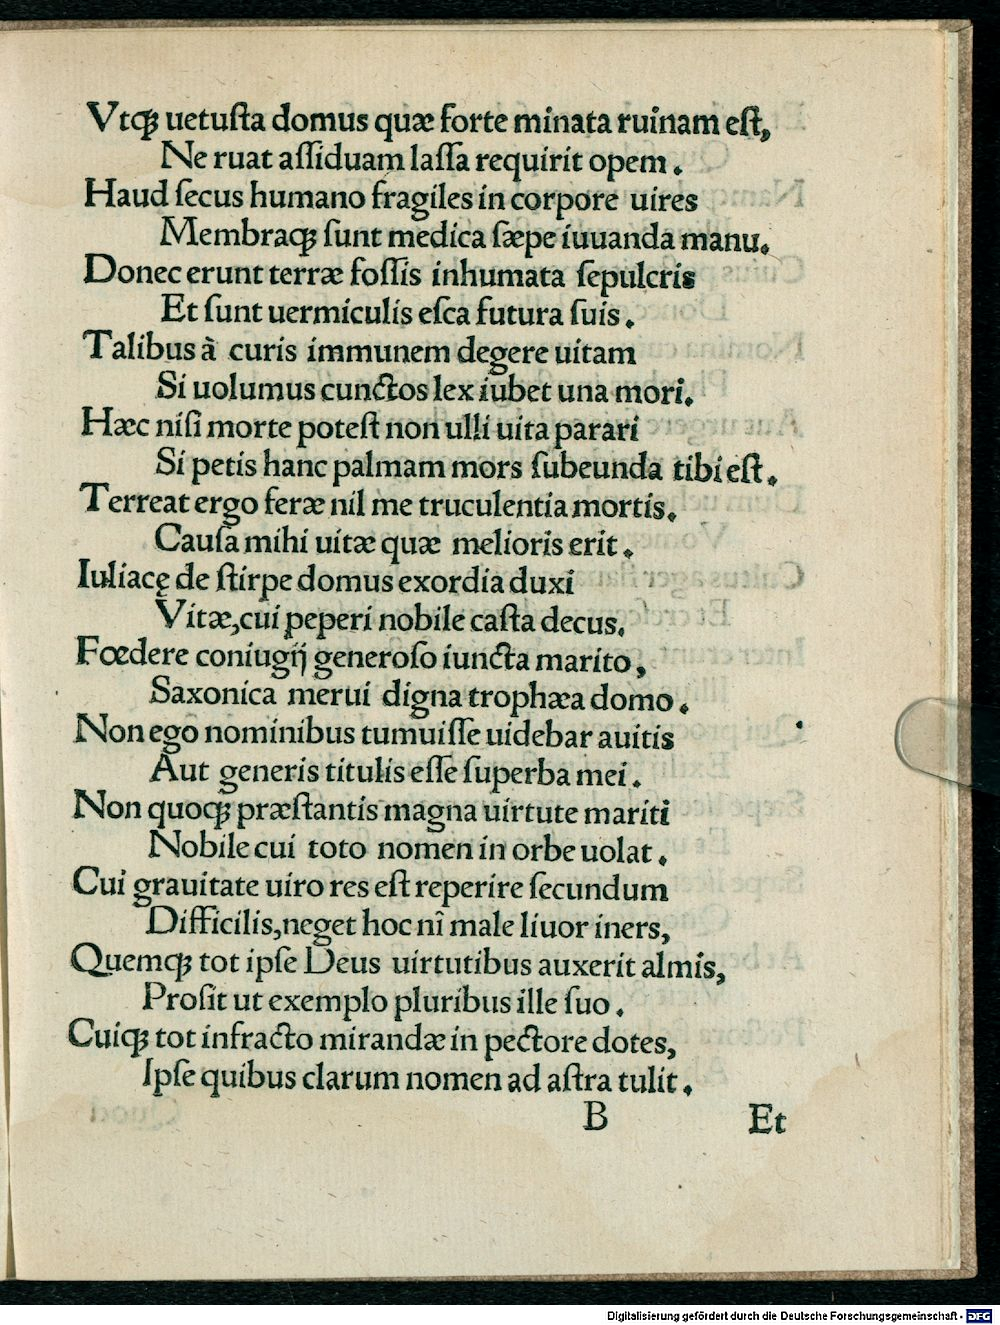 Vtqꝫ uetuſta domus quæ forte minata ruinam eſt,
Ne ruat aſſiduam laſſa requirit opem.
Haud ſecus humano fragiles in corpore uires
Membraqꝫ ſunt medica ſæpe iuuanda manu.
Donec erunt terræ foſſis inhumata ſepulcris
Et ſunt uermiculis eſca futura ſuis.
Talibus à curis immunem degere uitam
Si uolumus cunctos lex iubet una mori.
Hæc niſi morte poteſt non ulli uita parari
Si petis hanc palmam mors ſubeunda tibi eſt.
Terreat ergo feræ nil me truculentia mortis.
Cauſa mihi uitæ quæ melioris erit.
Iuliacę de ſtirpe domus exordia duxi
Vitæ,cui peperi nobile caſta decus.
Fœdere coniugij generoſo iuncta marito,
Saxonica merui digna trophæa domo.
Non ego nominibus tumuiſſe uidebar auitis
Aut generis titulis eſſe ſuperba mei.
Non quoqꝫ præſtantis magna uirtute mariti
Nobile cui toto nomen in orbe uolat.
Cui grauitate uiro res eſt reperire ſecundum
Difficilis,neget hoc nî male liuor iners,
Quemqꝫ tot ipſe Deus uirtutibus auxerit almis,
Proſit ut exemplo pluribus ille ſuo.
Cuiqꝫ tot infracto mirandæ in pectore dotes,
Ipſe quibus clarum nomen ad aſtra tulit.
B Et
Digitalisierung gefördert durch die Deutsche Forschungsgemeinschaft - DFG